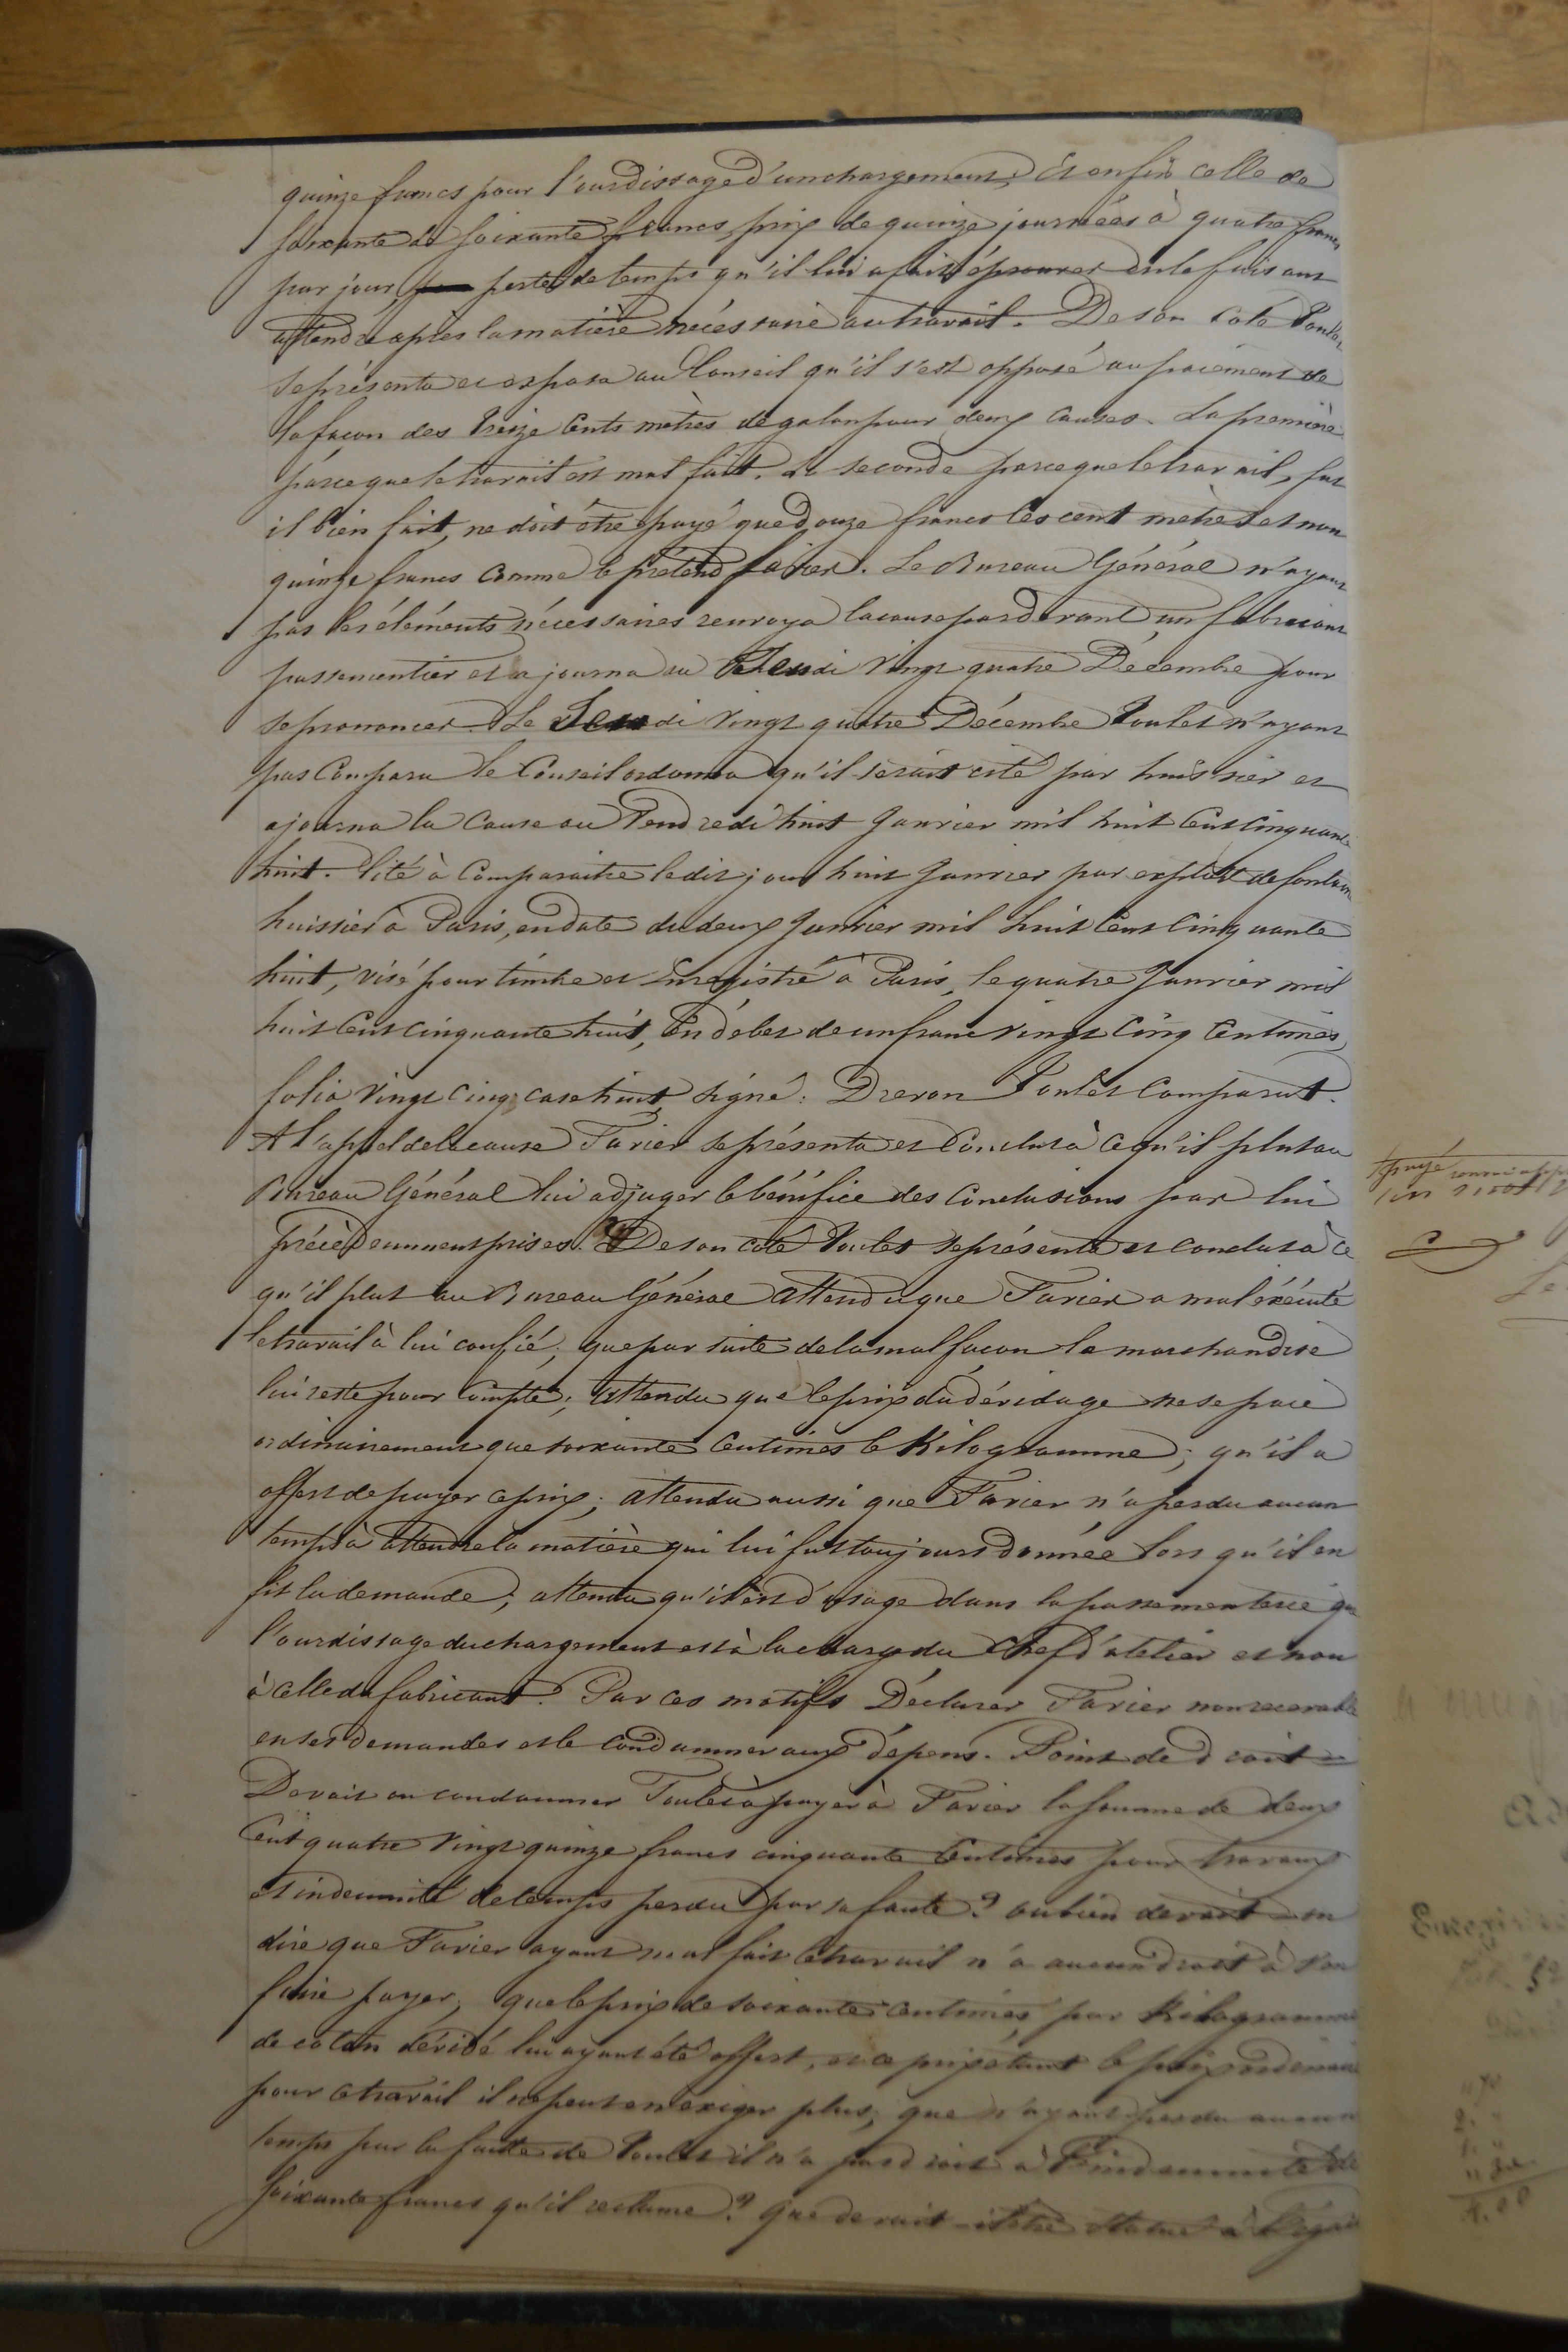 quinze francs pour l'ourdissage d'un chargement; Et enfin celle de
soixante de soixante francs, prix de quinze journées à quatre francs
par jour, perte de temps qu'il lui a fait éprouver en le faisant
attendre après la matière nécessaire au travail. De son coté Poulet
se présenta et exposa au Conseil qu'il s'est opposé au paiement de
la façon des treize cents mètres de galon pour deux causes. La première
parceque le travail est mal fait. La seconde parceque le travail, fut
il bien fait, ne doit être payé que douze francs les cent mètres et non
quinze francs comme le prétend Favier. Le Bureau Général n'ayant
pas les éléments nécessaires renvoya la cause pardevant un fabricant
passementier et ajourna au Jeudi vingt quatre Décembre pour
se prononcer. Le Jeudi vingt quatre Décembre Poulet n'ayant
pas Comparu le Conseil ordonna qu'il serait cité par huissier et
ajourna la cause au Vendredi huit Janvier mil huit Cent Cinquante
huit. Cité à Comparaitre ledit jour huit Janvier par exploit de
huissier à Paris, en date du deux Janvier mil huit Cent Cinquante
huit, visé pour timbre et Enregistré à Paris, le quatre Janvier mil
huit Cent cinquante huit, En débet de un franc vingt Cinq Centimes,
folio vingt cinq, case huit, signé: Drevon Poulet Comparut.
A l'appel de la cause Favier se présenta et Conclut à ce qu'il plut au
Bureau Général lui adjuger le bénéfice des Conclusions par lui
précèdemment prises. De son coté Poulet se présenta et conclut à ce
qu'il plut au Bureau Général attendu que Favier a mal éxécuté
le travail à lui confié; que par suite de la mal façon la marchandise
lui reste pour Compte; attendu que le prix du dévidage ne se paie
ordinairement que soixante Centimes le Kilogramme; qu'il a
offert de payer ce prix; attendu aussi que Favier n'a perdu aucun
temps à attendre la matière qui lui fut toujours donnée lors qu'il en
fit la demande; attendu qu'il est d'usage dans la passementerie que
l'ourdissage du chargement est à la charge du Chef d'atelier et non
à celle du fabricant. Par ces motifs Déclarer Favier non recevable
en ses demandes et le condamner aux dépens. Point de droit
Devait on condamner Poulet à payer à Favier la somme de deux
Cent quatre vingt quinze francs cinquante Centimes pour travaux
et indemnité de temps perdu par sa faute? ou bien devait-on
dire que Favier ayant mal fait le travail n'a aucun droit à s'en
faire payer; que le prix de soixante centimes par Kilogramme
de coton dévidé lui ayant été offert, et ce prix étant le prix ordinaire
pour ce travail il ne peut en exiger plus; que n'ayant perdu aucun
temps par la faute de Poulet il n'a pas droit à l'indemnité de
soixante francs qu'il reclame? Que devait-il être statué à l'égard